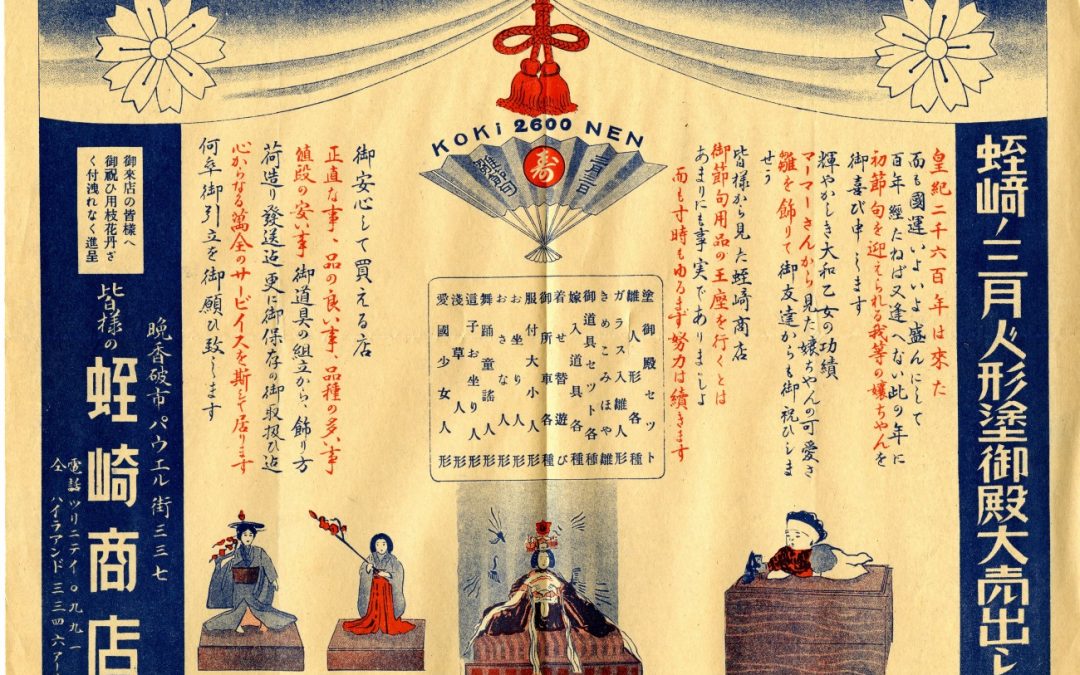 蛭崎ノ三月人形塗御殿大売出シ
皇紀二千六百年は来た
而も國運いよいよ盛んにして
百年經たねば又逢へない此の年に
初節句を迎えられる我等の嬢ちやんを
御喜び申します
輝やかしき大和乙女の功績
マーマーさんから見た嬢ちやんの可愛さ
雛を飾りて御友達からも御祝ひしま
せう
皆様から見た蛭崎商店
御節句用品の王座を行くとは
あまりにも事実でありましよ
而も寸時もゆるまず努力は續きます
KOKi 2600 NEN
三月三日
寿
雛節句
塗御殿セット
雛人形各種
ガラス入雛人形
きめこみほや雛
御道具セット各種
嫁入道具各種
着せ替遊び
御所車各種
服付大小人形
お坐り人形
おさな人形
舞踊童謡人形
道子お坐り人形
淺草人形
愛國少女人形
御安心して買える店
正直な事、品の良い事、品種の多い事
値段の安い事 御道具の組立から、飾り方
荷造り發送迠更に御保存の御取扱ひ迠
心からなる萬全のサービイスを斯して居ります
何卒御引立を御願ひ致します
御来店の皆様へ
御祝ひ用枝花丹ざ
く付洩れなく進呈
皆様の
蛭崎商店
晩香破市パウエル街三三七
電話ツリニテイ〇九九一
仝 ハイランド三三四六ア